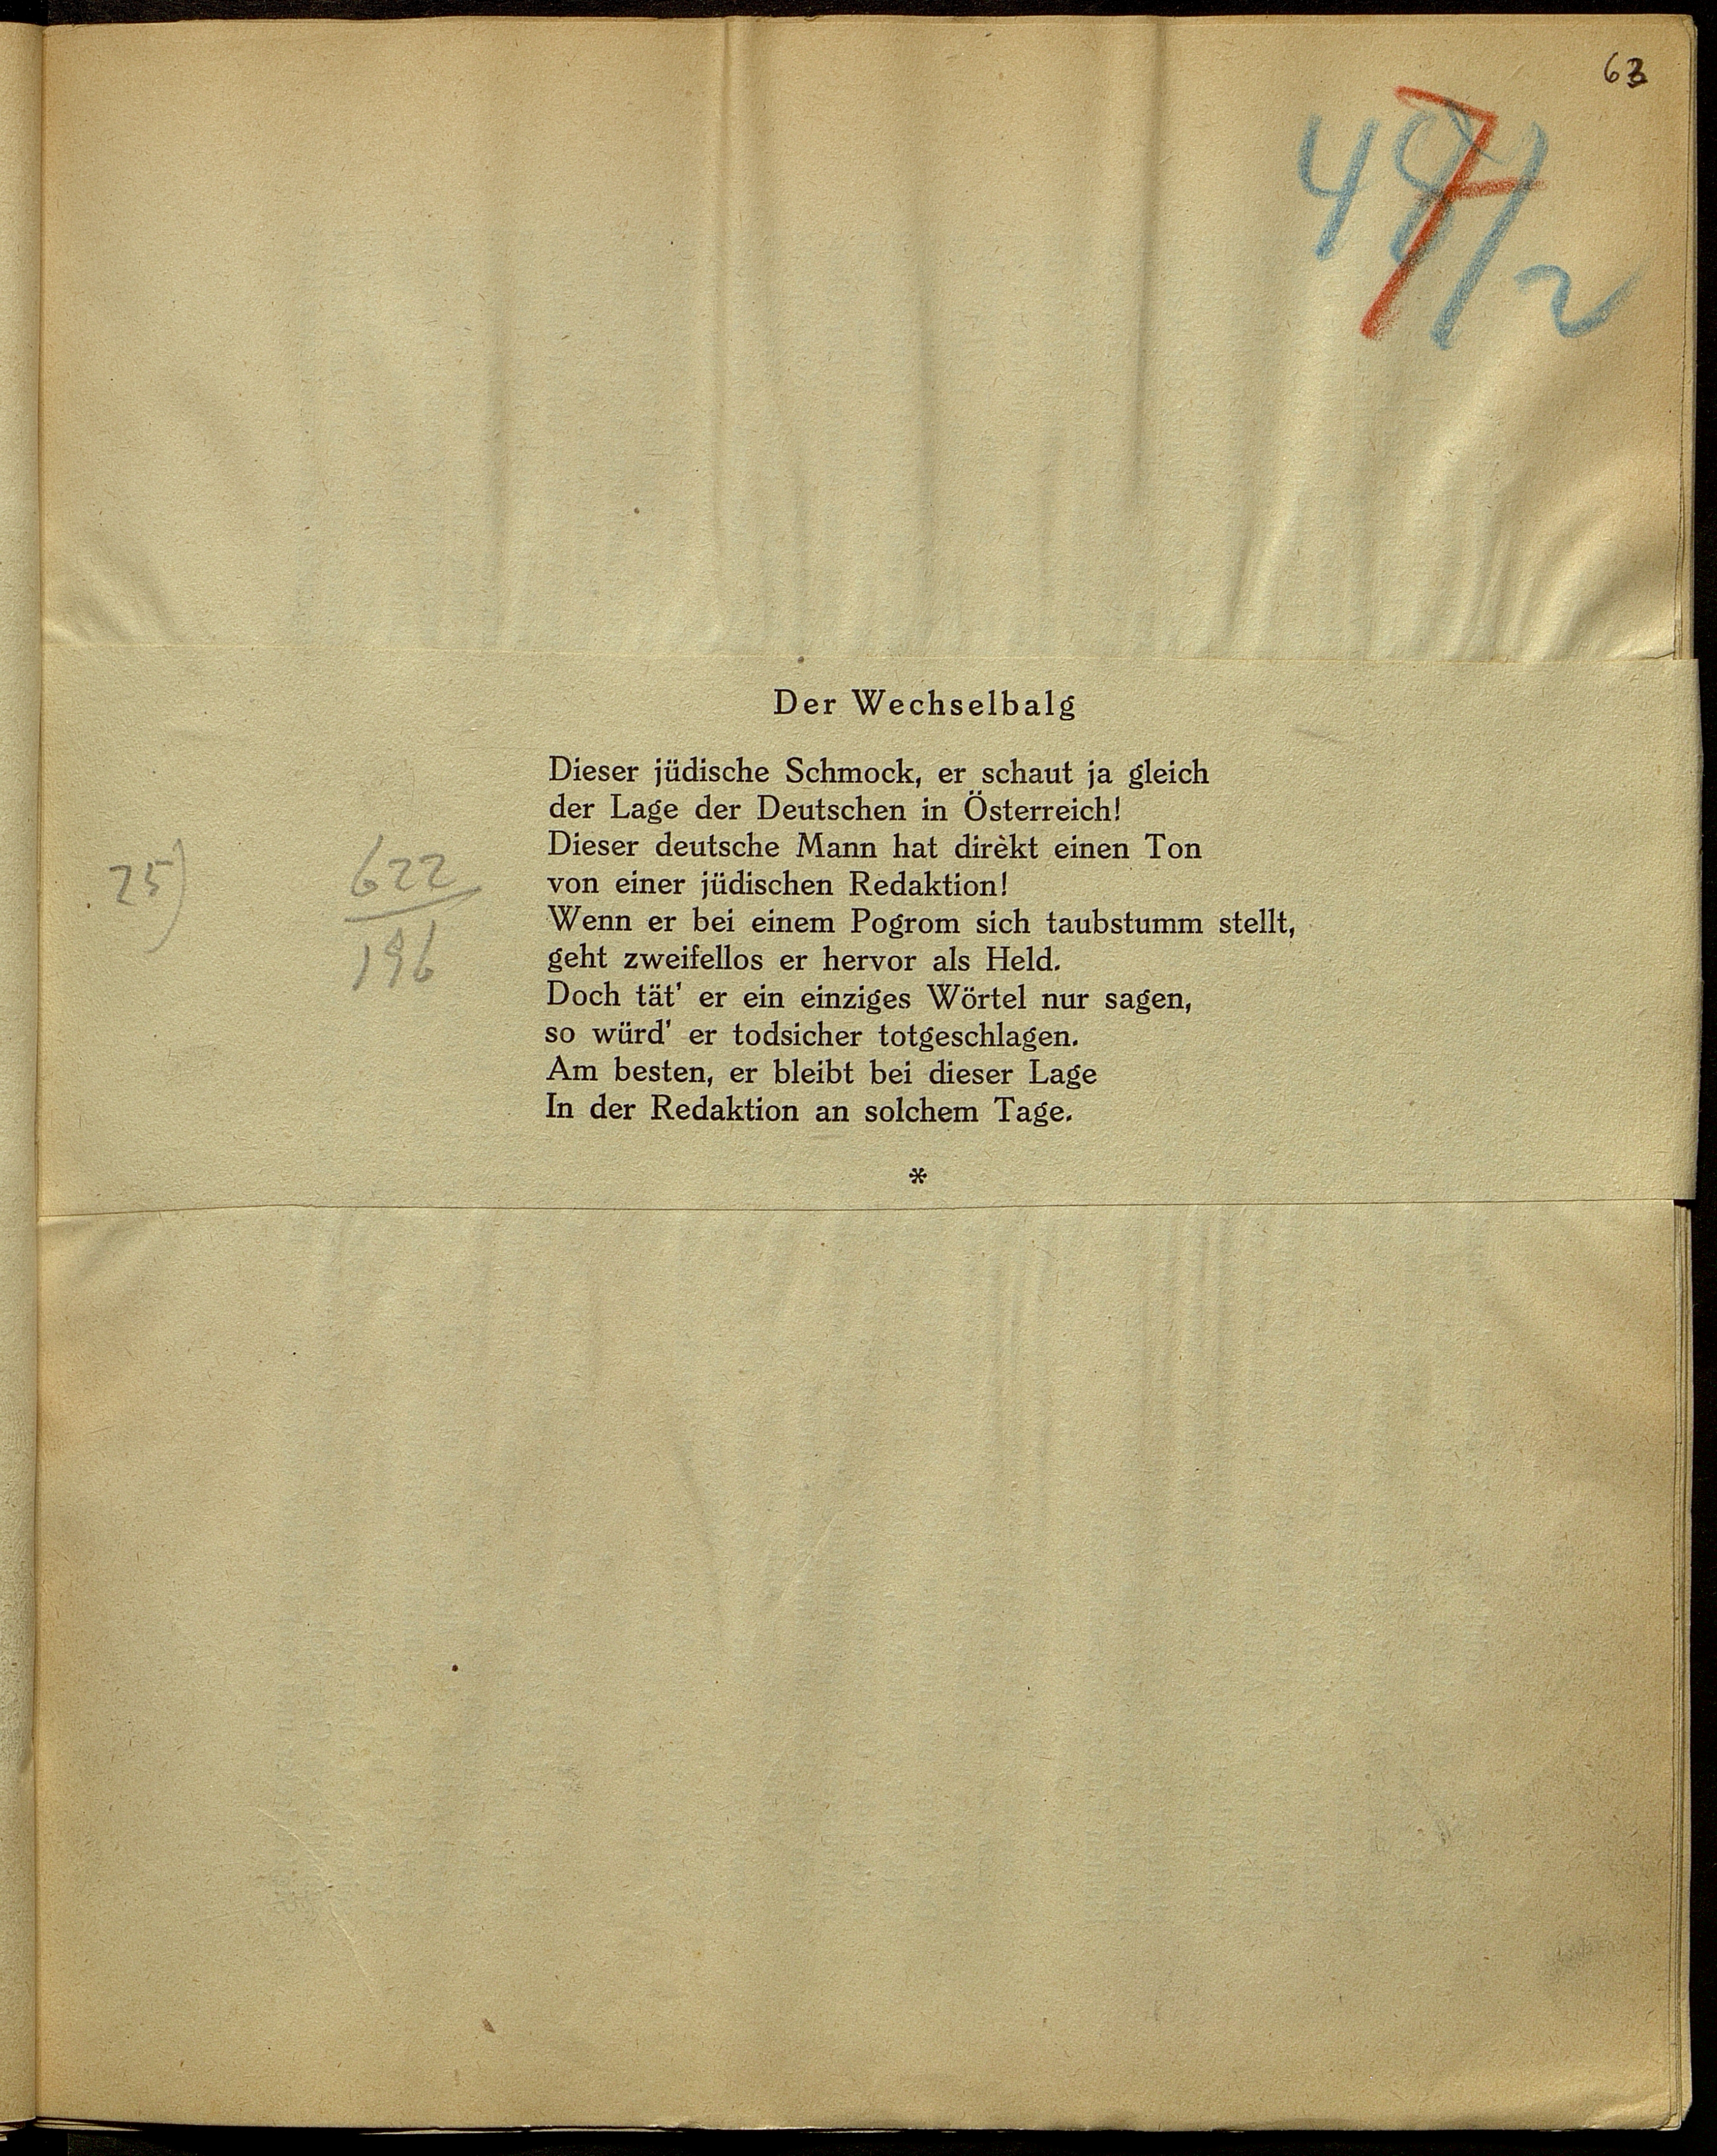 63
48/2
7
Der Wechselbalg
Dieser jüdische Schmock, er schaut ja gleich
der Lage der Deutschen in Österreich!
Dieser deutsche Mann hat dirèkt einen Ton
von einer jüdischen Redaktion!
Wenn er bei einem Pogrom sich taubstumm stellt,
geht zweifellos er hervor als Held.
Doch tät' er ein einziges Wörtel nur sagen,
so würd' er todsicher totgeschlagen.
Am besten, er bleibt bei dieser Lage
In der Redaktion an solchem Tage.
*
25)
622
196